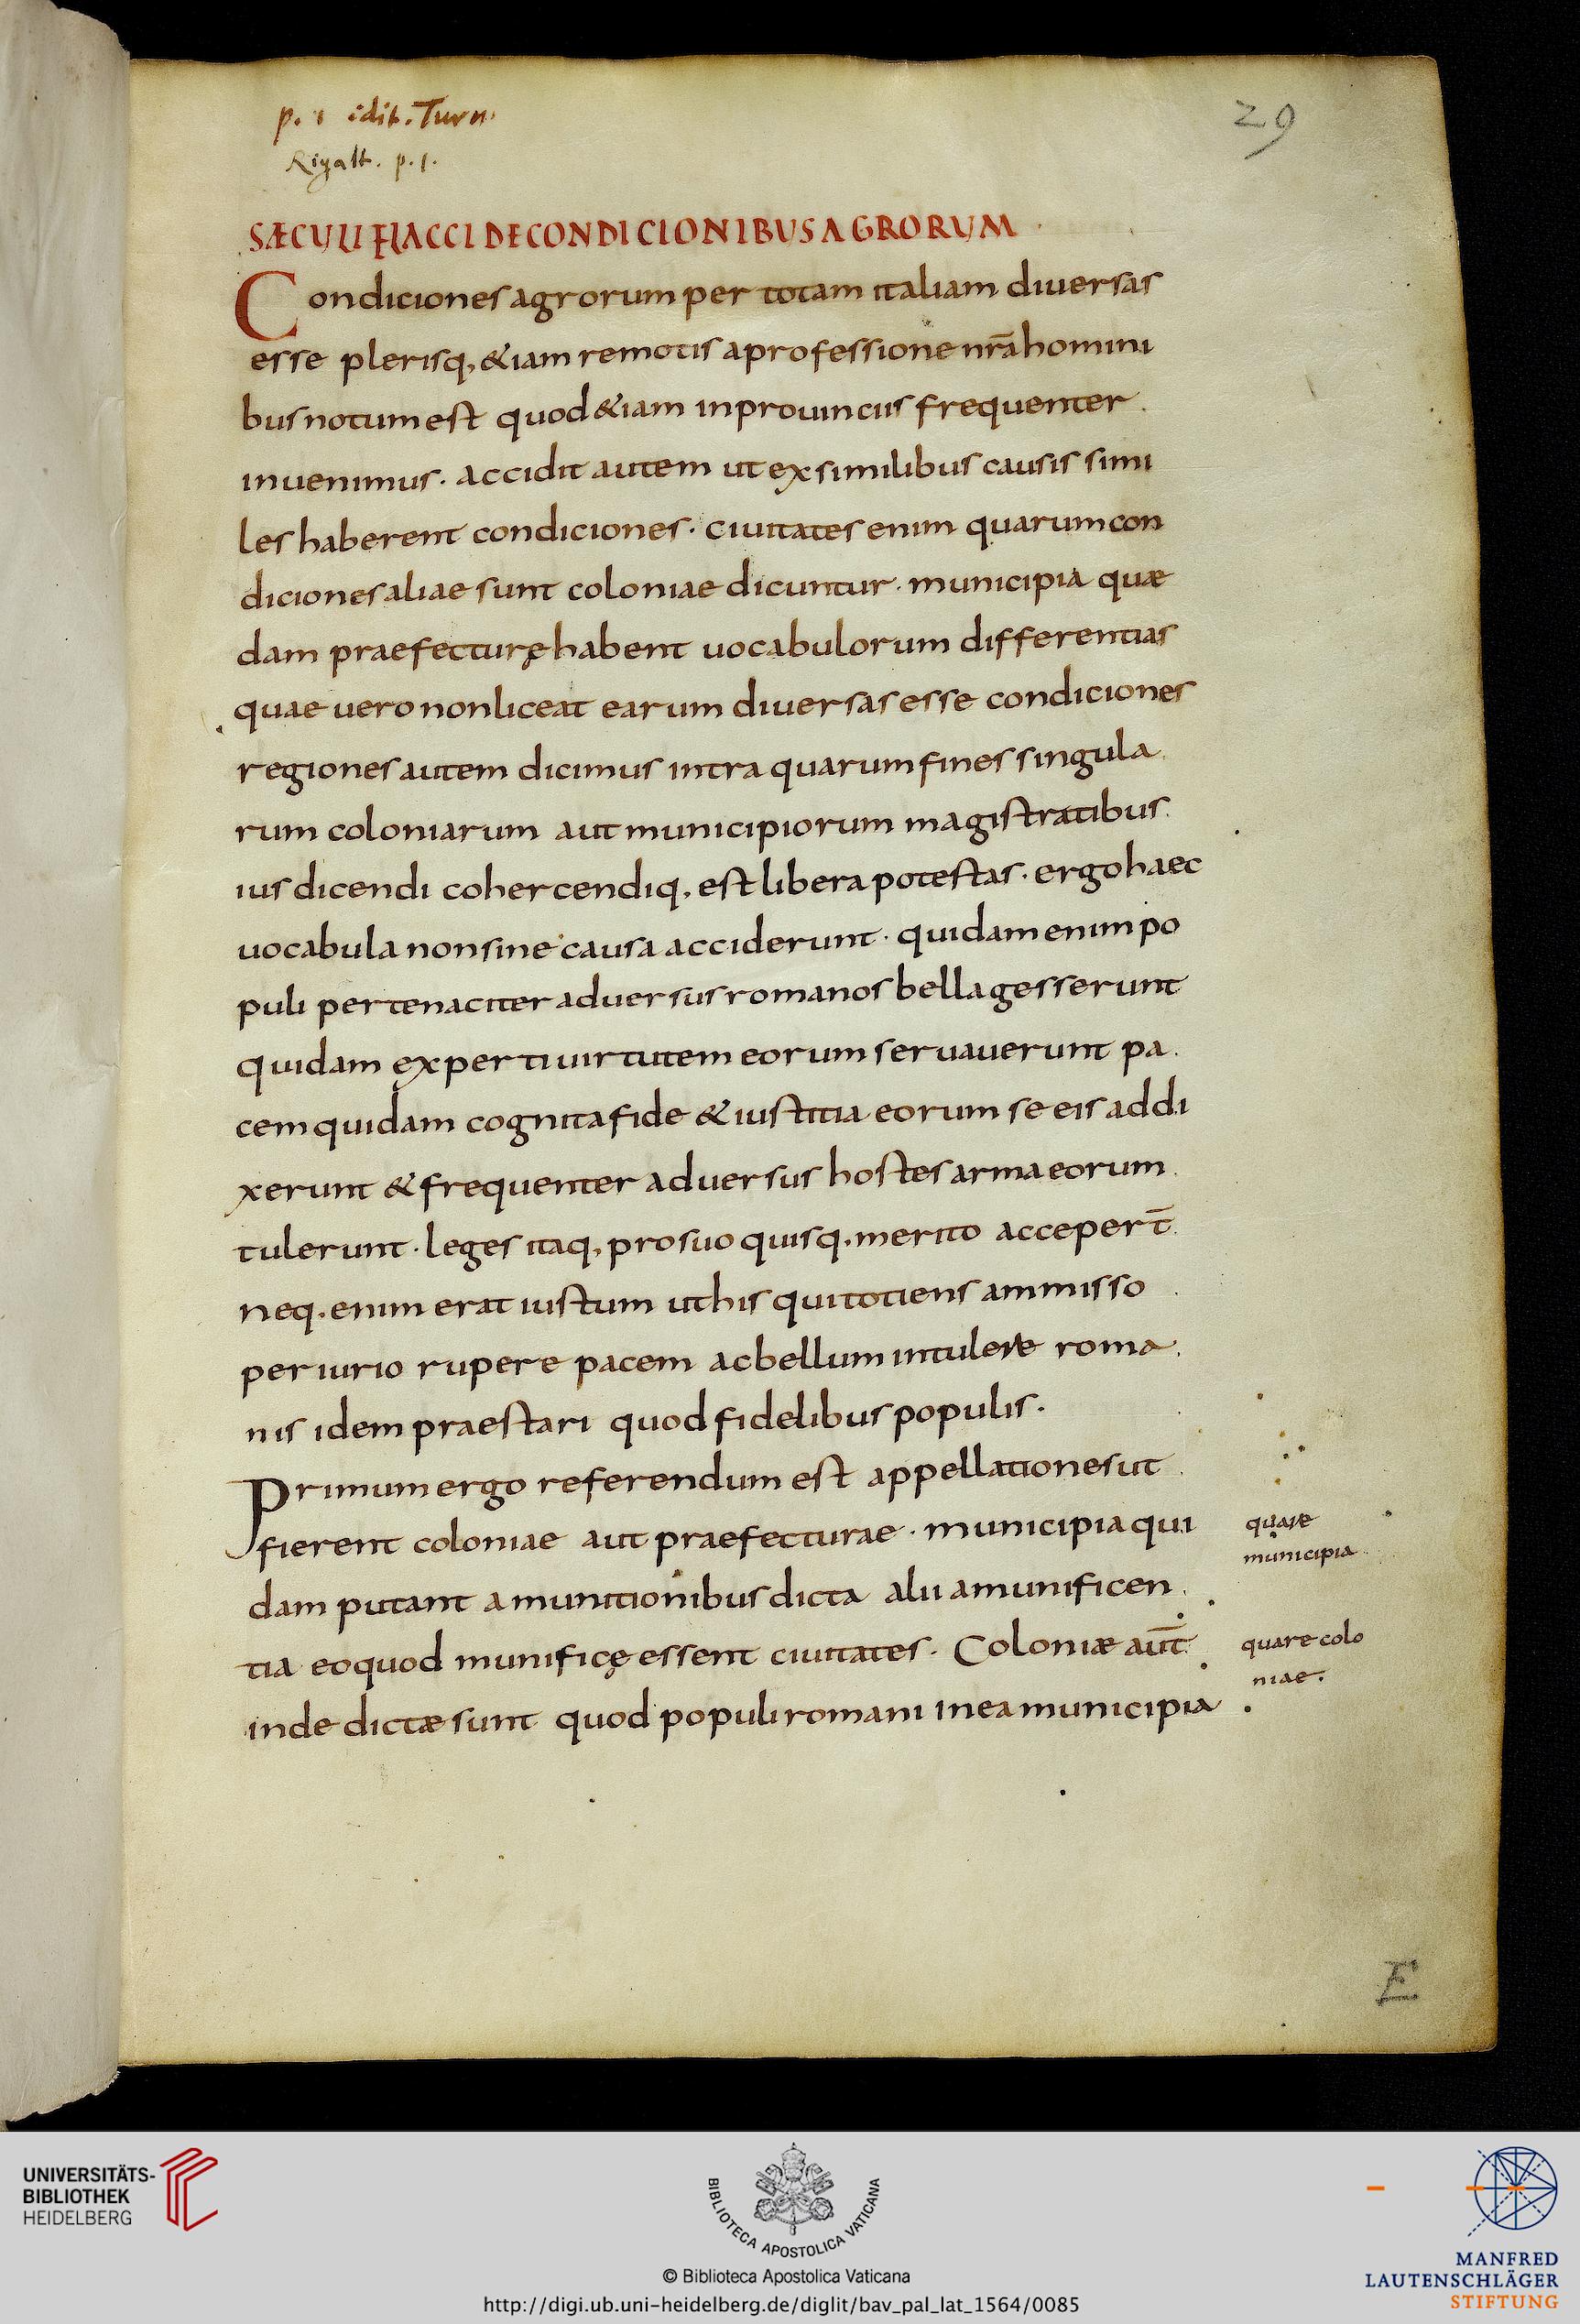 p. 1 edit. Turn.
29
Rigalt. p. 1.
SÆCULI FLACCI DE CONDICIONIBUS AGRORUM
Condiciones agrorum per totam italiam diuersas
esse plerisq; &iam remotis a professione nr̄a homini
bus notum est quod &iam in prouinciis frequenter
inuenimus. accidit autem ut ex similibus causis simi
les haberent condiciones. ciuitates enim quarum con
diciones aliae sunt coloniae dicuntur. municipia quæ
dam praefecturę habent uocabulorum differentias
quae uero non liceat earum diuersas esse condiciones
regiones autem dicimus intra quarum fines singula
rum coloniarum aut municipiorum magistratibus
ius dicendi cohercendiq; est libera potestas. ergo haec
uocabula non sine causa acciderunt. quidam enim po
puli pertenaciter aduersus romanos bella gesserunt
quidam experti uirtutem eorum seruauerunt pa
cem quidam cognita fide & iustitia eorum se eis addi
xerunt & frequenter aduersus hostes arma eorum
tulerunt. leges itaq; pro suo quisq; merito acceper̄t
neq; enim erat iustum ut his qui totiens ammisso
periurio rupere pacem ac bellum intulere roma
nis idem praestari quod fidelibus populis.
Primum ergo referendum est appellationes ut
fierent coloniae aut praefecturae. municipia qui
quare
municipia
dam putant a munitionibus dicta alii a munificen
tia eo quod munificę essent ciuitates. Coloniæ aut̄
quare colo
niae.
inde dictæ sunt quod populi romani in ea municipia
E
UNIVERSITÄTS-
BIBLIOTHEK
HEIDELBERG
BIBLIOTECA APOSTOLICA VATICANA
© Biblioteca Apostolica Vaticana
http://digi.ub.uni-heidelberg.de/diglit/bav_pal_lat_1564/0085
MANFRED
LAUTENSCHLÄGER
STIFTUNG